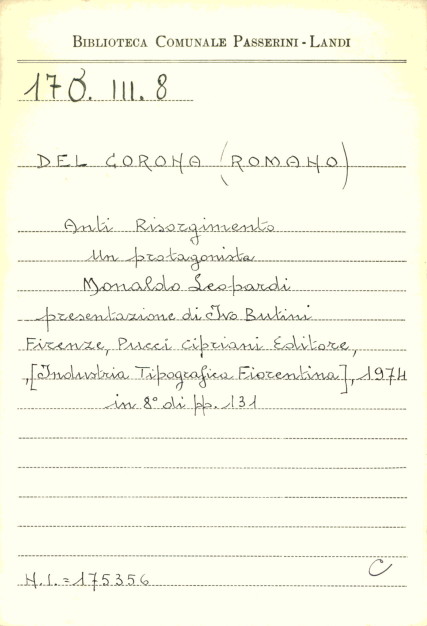 BIBLIOTECA COMUNALE PASSERINI - LANDI
170. III. 8
DEL CORONA (ROMANO)
Anti Risorgimento
Un protagonista
Monaldo Leopardi
presentazione di Ivo Butini
Firenze, Pucci Cipriani Editore,
,[Industria Tipografica Fiorentina], 1974
in 8° di pp. 131
N.I. = 175356
C